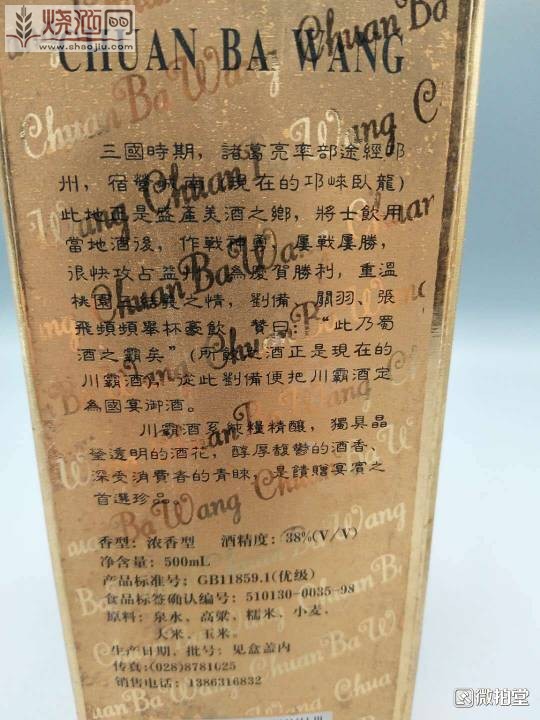 烧酒网
www.shaojiu.com
CHUAN BA WANG
三國時期，諸葛亮率部途經邛
州，宿營城南（現在的邛崍臥龍）
此地正是盛產美酒之鄉，將士飲用
當地酒後，作戰神勇，屢戰屢勝，
很快攻占益州。為慶賀勝利，重溫
桃園結義之情，劉備、關羽、張
飛頻頻舉杯豪飲，贊曰："此乃蜀
酒之霸矣"（所飲之酒正是現在的
川霸酒），從此劉備便把川霸酒定
為國宴御酒。
川霸酒系純糧精釀，獨具晶
瑩透明的酒花，醇厚馥鬱的酒香、
深受消費者的青睞，是饋贈宴賓之
首選珍品。
香型：浓香型 酒精度：38%(V/V)
净含量：500mL
产品标准号：GB11859.1(优级)
食品标签确认编号：510130-0035-98
原料：泉水、高粱、糯米、小麦、
大米、玉米。
生产日期、批号：见盒盖内
传真：(028)8781025
销售电话：1386316832
微拍堂